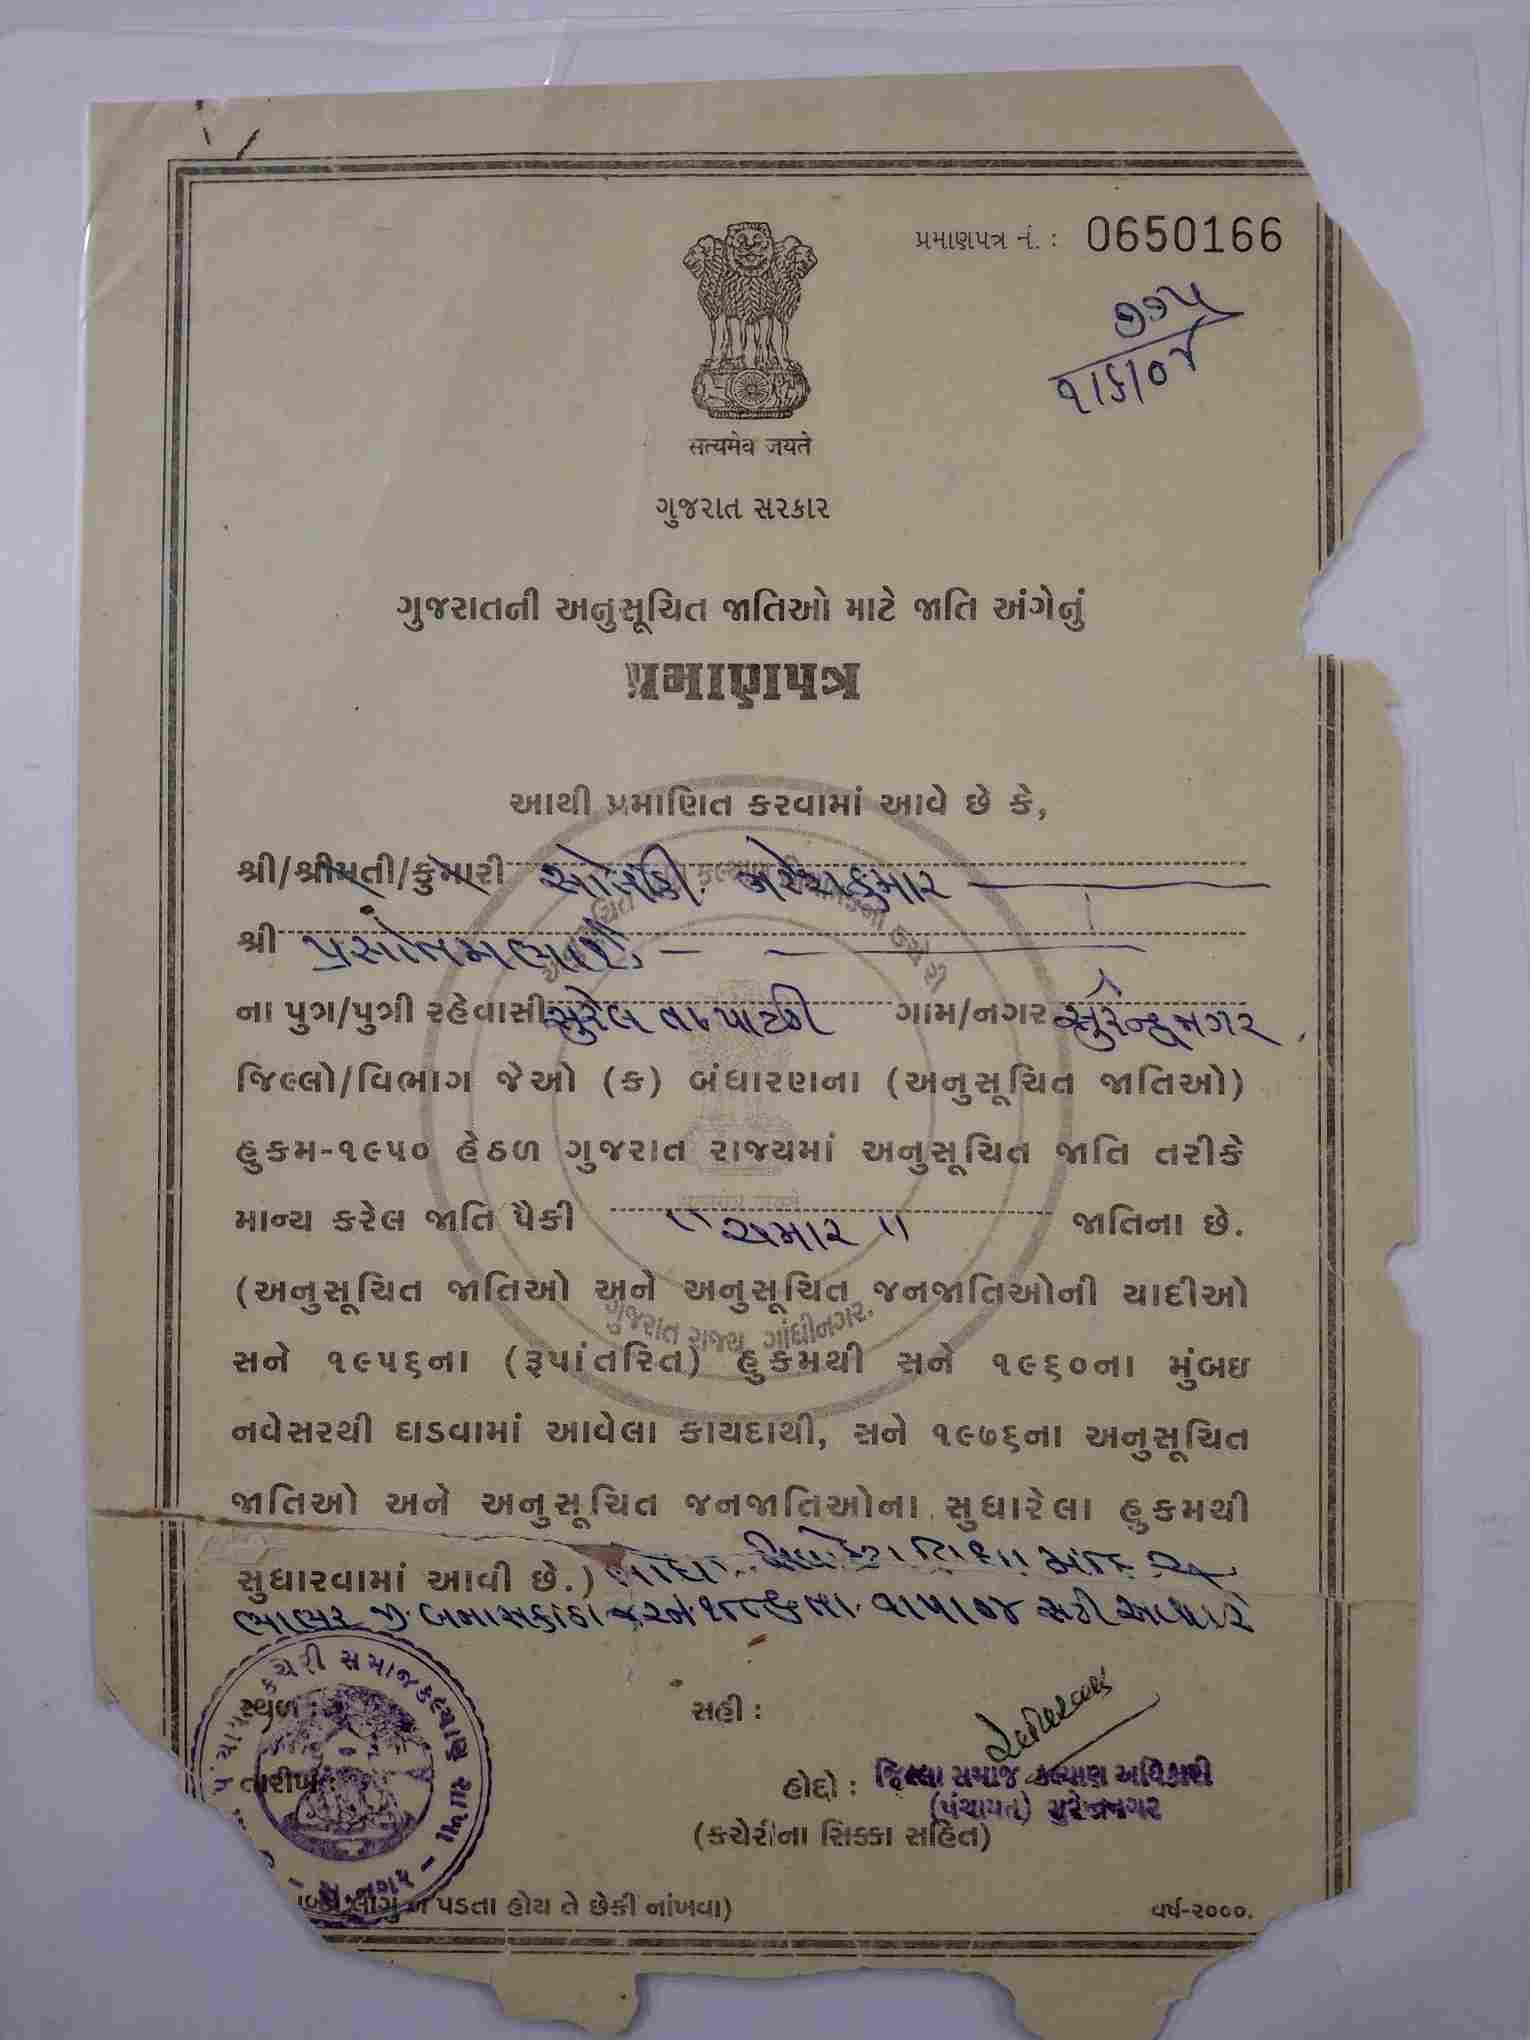 પ્રમાણપત્ર નં. : 0650166
૭૭૫
૧/૬/૦૪
सत्यमेव जयते
ગુજરાત સરકાર
ગુજરાતની અનુસૂચિત જાતિઓ માટે જાતિ અંગેનું
પ્રમાણપત્ર
આથી પ્રમાણિત કરવામાં આવે છે કે,
શ્રી/શ્રીમતી/કુમારી સોલંકી નરેશકુમાર
શ્રી
ના પુત્ર/પુત્રી રહેવાસી સુરેલ તા. પાટડી ગામ/નગર સુરેન્દ્રનગર
જિલ્લો/વિભાગ જેઓ (ક) બંધારણના (અનુસૂચિત જાતિઓ)
હુકમ-૧૯૫૦ હેઠળ ગુજરાત રાજ્યમાં અનુસૂચિત જાતિ તરીકે
માન્ય કરેલ જાતિ પૈકી "ચમાર" જાતિના છે.
(અનુસૂચિત જાતિઓ અને અનુસૂચિત જનજાતિઓની યાદીઓ
સને ૧૯૫૬ના (રૂપાંતરિત) હુકમથી સને ૧૯૬૦ના મુંબઇ
નવેસરથી ઘડવામાં આવેલા કાયદાથી, સને ૧૯૭૬ના અનુસૂચિત
જાતિઓ અને અનુસૂચિત જનજાતિઓના સુધારેલા હુકમથી
સુધારવામાં આવી છે.)
જી. બનાસકાંઠા
કચેરી સમાજકલ્યાણ શાખા
સ્થળ :
સહી :
તારીખ :
હોદ્દો : જિલ્લા સમાજ કલ્યાણ અધિકારી
(પંચાયત) સુરેન્દ્રનગર
(કચેરીના સિક્કા સહિત)
લાગુ ન પડતા હોય તે છેકી નાંખવા)
વર્ષ-૨૦૦૦.
ગુજરાત રાજ્ય, ગાંધીનગર.